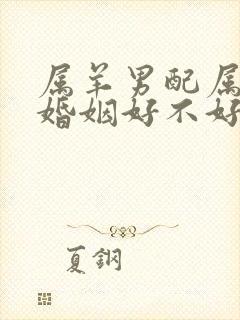 属羊男配属
婚姻好不好
夏鋼